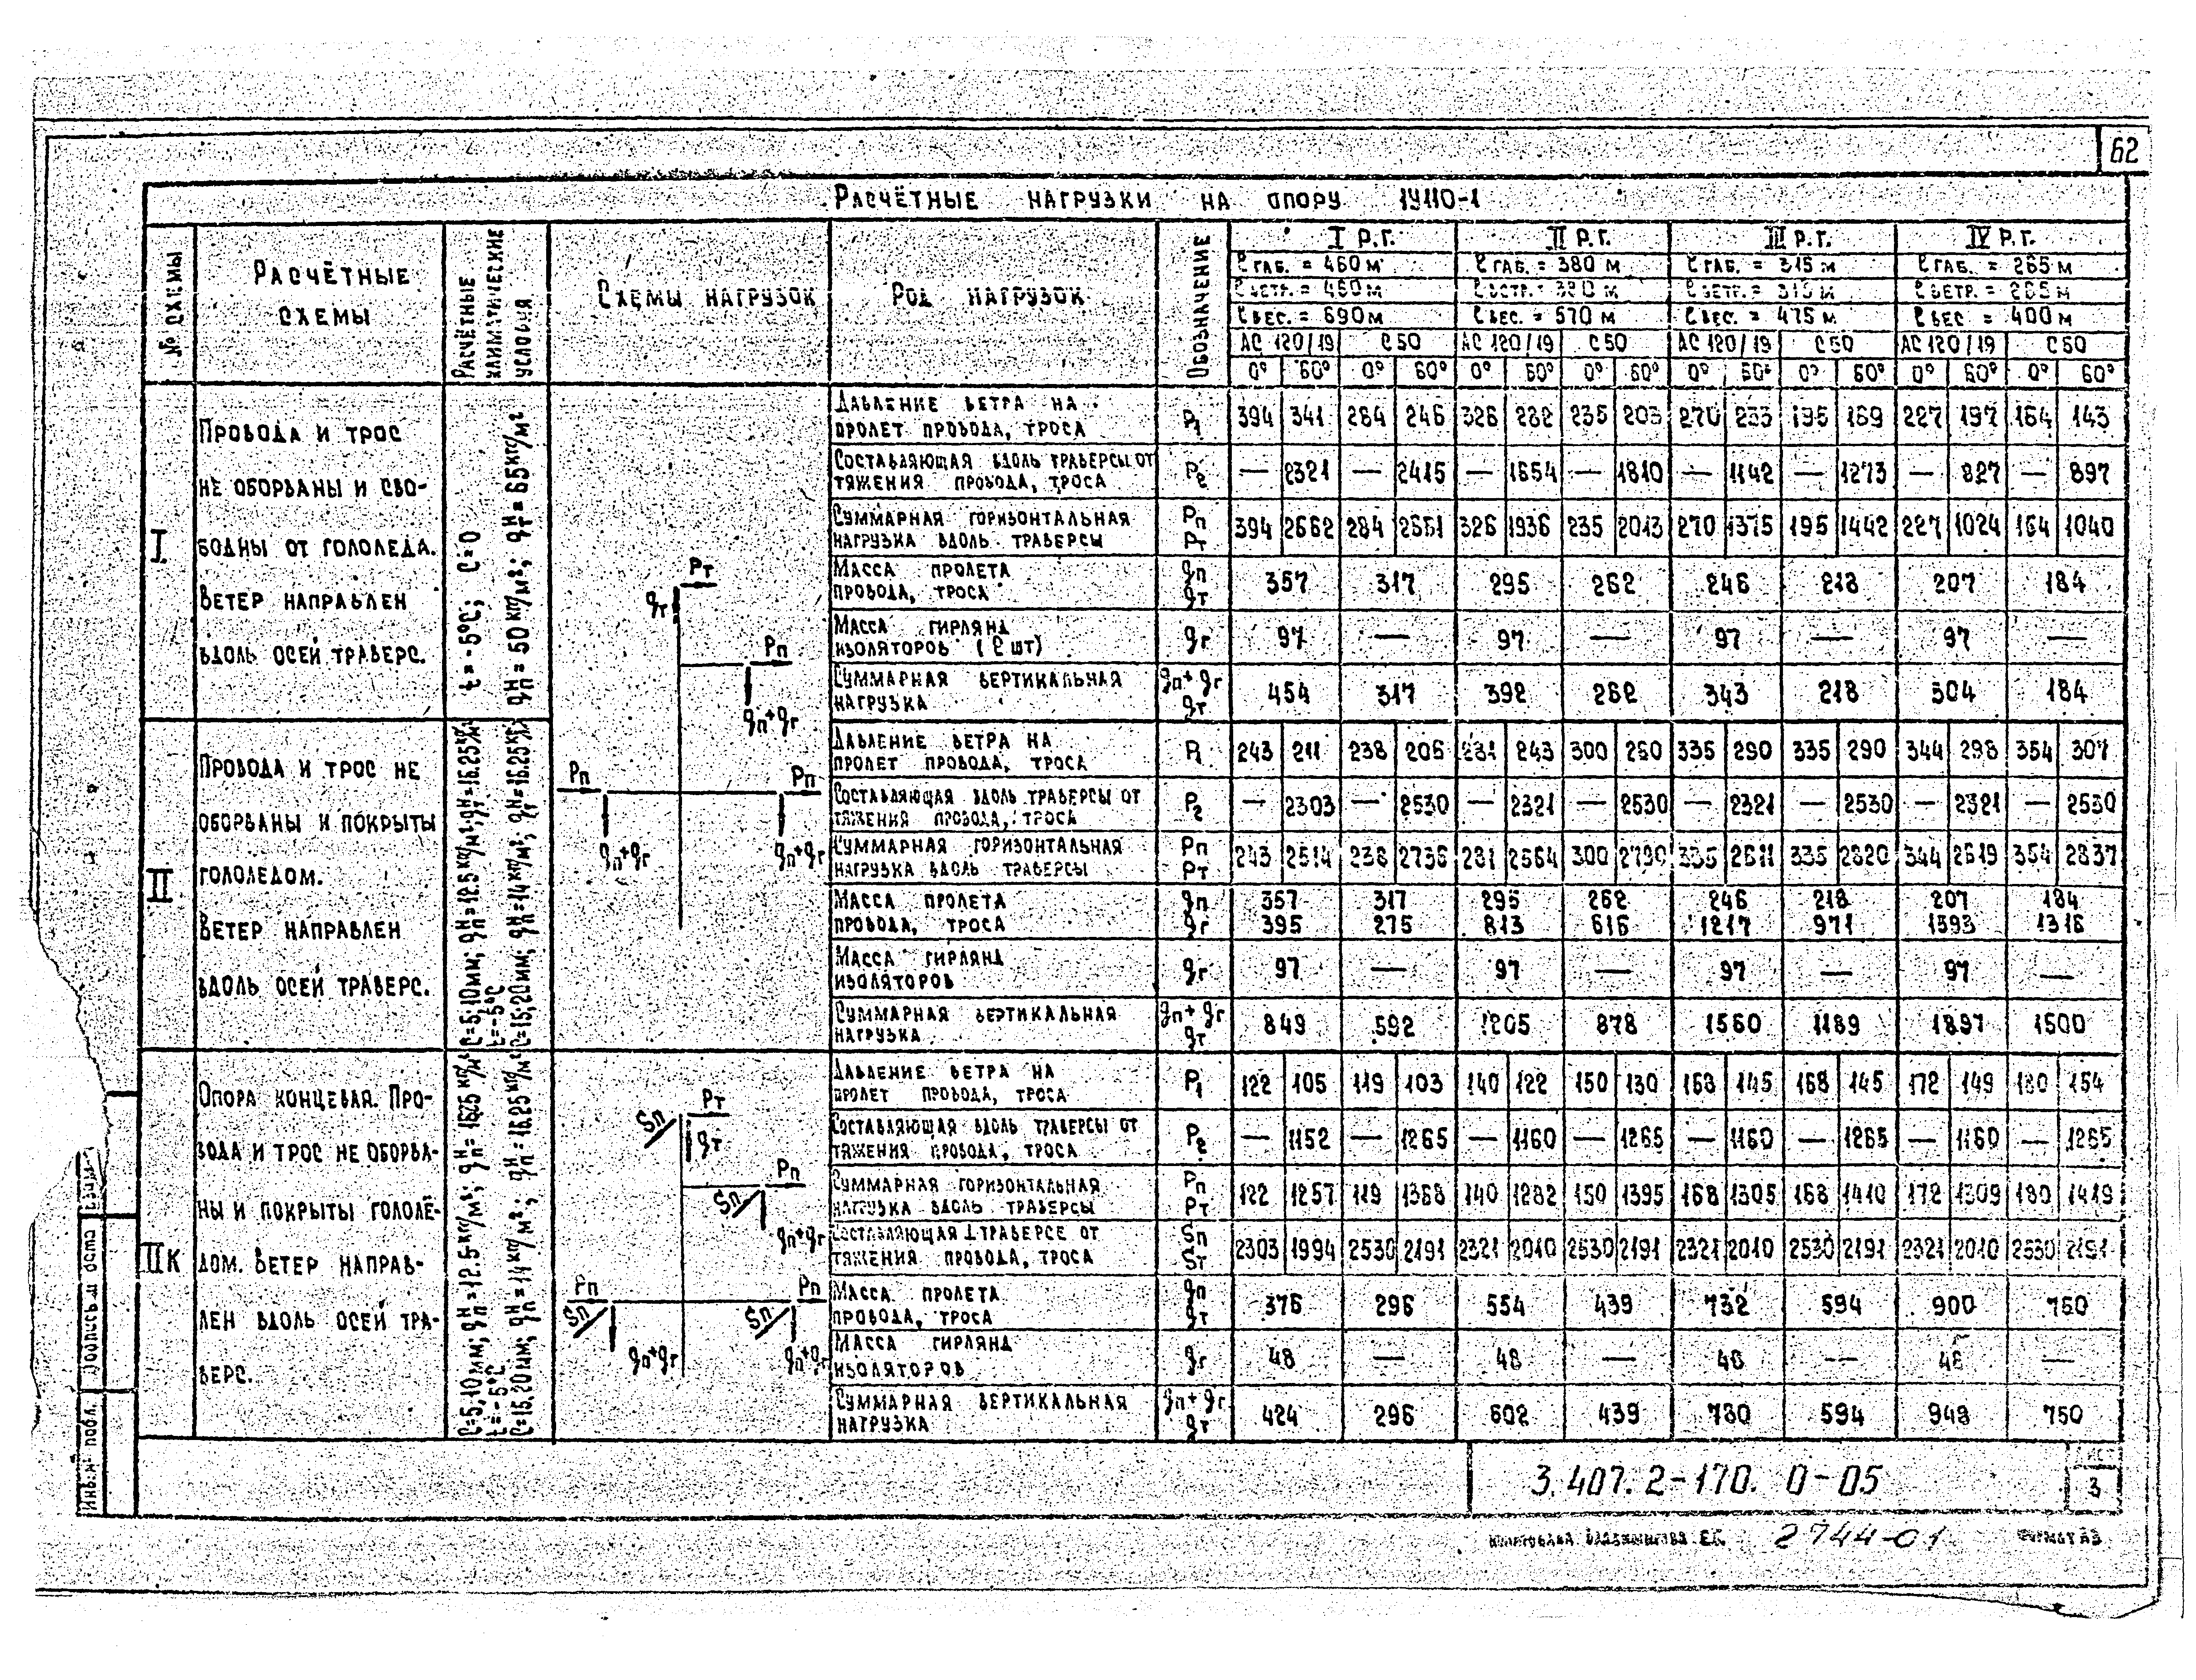 62
РАСЧЁТНЫЕ НАГРУЗКИ НА ОПОРУ 1У110-1
№ СХЕМЫ
РАСЧЁТНЫЕ СХЕМЫ
РАСЧЁТНЫЕ КЛИМАТИЧЕСКИЕ УСЛОВИЯ
СХЕМЫ НАГРУЗОК
РОД НАГРУЗОК
ОБОЗНАЧЕНИЕ
I Р.Г. II Р.Г. III Р.Г. IV Р.Г.
ℓ ГАБ. = 460 м ℓ ГАБ. = 380 м ℓ ГАБ. = 315 м ℓ ГАБ. = 265 м
ℓ ВЕТР. = 460 м ℓ ВЕТР. = 380 м ℓ ВЕТР. = 315 м ℓ ВЕТР. = 265 м
ℓ ВЕС. = 690 м ℓ ВЕС. = 570 м ℓ ВЕС. = 475 м ℓ ВЕС = 400 м
АС 120/19 С 50 АС 120/19 С 50 АС 120/19 С 50 АС 120/19 С 50
0° 60° 0° 60° 0° 60° 0° 60° 0° 60° 0° 60° 0° 60° 0° 60°
I
ПРОВОДА И ТРОС
НЕ ОБОРВАНЫ И СВО-
БОДНЫ ОТ ГОЛОЛЕДА.
ВЕТЕР НАПРАВЛЕН
ВДОЛЬ ОСЕЙ ТРАВЕРС.
t = -5°C; C=0
qНп = 50 кг/м²; qНт = 65 кг/м²
Рт
gт
Рп
gп+gг
Рп
Рп
gп+gг
gп+gг
ДАВЛЕНИЕ ВЕТРА НА
ПРОЛЕТ ПРОВОДА, ТРОСА
Р1
394 341 284 246 326 282 235 203 270 233 195 169 227 197 164 143
СОСТАВЛЯЮЩАЯ ВДОЛЬ ТРАВЕРСЫ ОТ
ТЯЖЕНИЯ ПРОВОДА, ТРОСА
Р2
— 2321 — 2415 — 1654 — 1810 — 1142 — 1273 — 827 — 897
СУММАРНАЯ ГОРИЗОНТАЛЬНАЯ
НАГРУЗКА ВДОЛЬ ТРАВЕРСЫ
Рп
Рт
394 2662 284 2661 326 1936 235 2013 270 1375 195 1442 227 1024 164 1040
МАССА ПРОЛЕТА
ПРОВОДА, ТРОСА
gп
gт
357 317 295 262 246 218 207 184
МАССА ГИРЛЯНД
ИЗОЛЯТОРОВ (2 шт)
gг
97 — 97 — 97 — 97 —
СУММАРНАЯ ВЕРТИКАЛЬНАЯ
НАГРУЗКА
gп+gг
gт
454 317 392 262 343 218 304 184
II
ПРОВОДА И ТРОС НЕ
ОБОРВАНЫ И ПОКРЫТЫ
ГОЛОЛЕДОМ.
ВЕТЕР НАПРАВЛЕН
ВДОЛЬ ОСЕЙ ТРАВЕРС.
C=5,10мм; qНп=12.5кг/м²; qНт=16.25кг/м²
t=-5°C
C=15,20мм; qНп=14кг/м²; qНт=16.25кг/м²
ДАВЛЕНИЕ ВЕТРА НА
ПРОЛЕТ ПРОВОДА, ТРОСА
Р1
243 211 238 206 281 243 300 260 335 290 335 290 344 298 354 307
СОСТАВЛЯЮЩАЯ ВДОЛЬ ТРАВЕРСЫ ОТ
ТЯЖЕНИЯ ПРОВОДА, ТРОСА
Р2
— 2303 — 2530 — 2321 — 2530 — 2321 — 2530 — 2321 — 2530
СУММАРНАЯ ГОРИЗОНТАЛЬНАЯ
НАГРУЗКА ВДОЛЬ ТРАВЕРСЫ
Рп
Рт
243 2514 238 2736 281 2564 300 2790 335 2611 335 2820 344 2619 354 2837
МАССА ПРОЛЕТА
ПРОВОДА, ТРОСА
gп
gг
357 317 295 262 246 218 207 184
395 275 813 616 1217 971 1593 1316
МАССА ГИРЛЯНД
ИЗОЛЯТОРОВ
gг
97 — 97 — 97 — 97 —
СУММАРНАЯ ВЕРТИКАЛЬНАЯ
НАГРУЗКА
gп+gг
gт
849 592 1205 878 1560 1189 1897 1500
IIК
ОПОРА КОНЦЕВАЯ. ПРО-
ВОДА И ТРОС НЕ ОБОРВА-
НЫ И ПОКРЫТЫ ГОЛОЛЁ-
ДОМ. ВЕТЕР НАПРАВ-
ЛЕН ВДОЛЬ ОСЕЙ ТРА-
ВЕРС.
C=5,10мм; qНп=12.5кг/м²; qНп=16.25кг/м²
t=-5°C
C=15,20мм; qНп=14кг/м²; qНп=16.25кг/м²
Sп
Рт
gт
Рп
Sп
gп+gг
Рп
Sп
Sп
Рп
gп+gг
gп+gг
ДАВЛЕНИЕ ВЕТРА НА
ПРОЛЕТ ПРОВОДА, ТРОСА
Р1
122 105 119 103 140 122 150 130 168 145 168 145 172 149 180 154
СОСТАВЛЯЮЩАЯ ВДОЛЬ ТРАВЕРСЫ ОТ
ТЯЖЕНИЯ ПРОВОДА, ТРОСА
Р2
— 1152 — 1265 — 1160 — 1265 — 1160 — 1265 — 1160 — 1265
СУММАРНАЯ ГОРИЗОНТАЛЬНАЯ
НАГРУЗКА ВДОЛЬ ТРАВЕРСЫ
Рп
Рт
122 1257 119 1368 140 1282 150 1395 168 1305 168 1410 172 1309 180 1419
СОСТАВЛЯЮЩАЯ ⊥ ТРАВЕРСЕ ОТ
ТЯЖЕНИЯ ПРОВОДА, ТРОСА
Sп
Sт
2303 1994 2530 2191 2321 2010 2530 2191 2321 2010 2530 2191 2321 2010 2530 2191
МАССА ПРОЛЕТА
ПРОВОДА, ТРОСА
gп
gт
376 296 554 439 732 594 900 750
МАССА ГИРЛЯНД
ИЗОЛЯТОРОВ
gг
48 — 48 — 48 — 48 —
СУММАРНАЯ ВЕРТИКАЛЬНАЯ
НАГРУЗКА
gп+gг
gт
424 296 602 439 780 594 948 750
Инв.№ подл.
Подпись и дата
3.407.2-170. 0-05
3
2744-01
ФОРМАТ А3